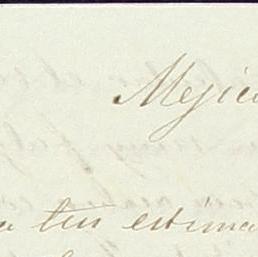 Mejico
a tus estima